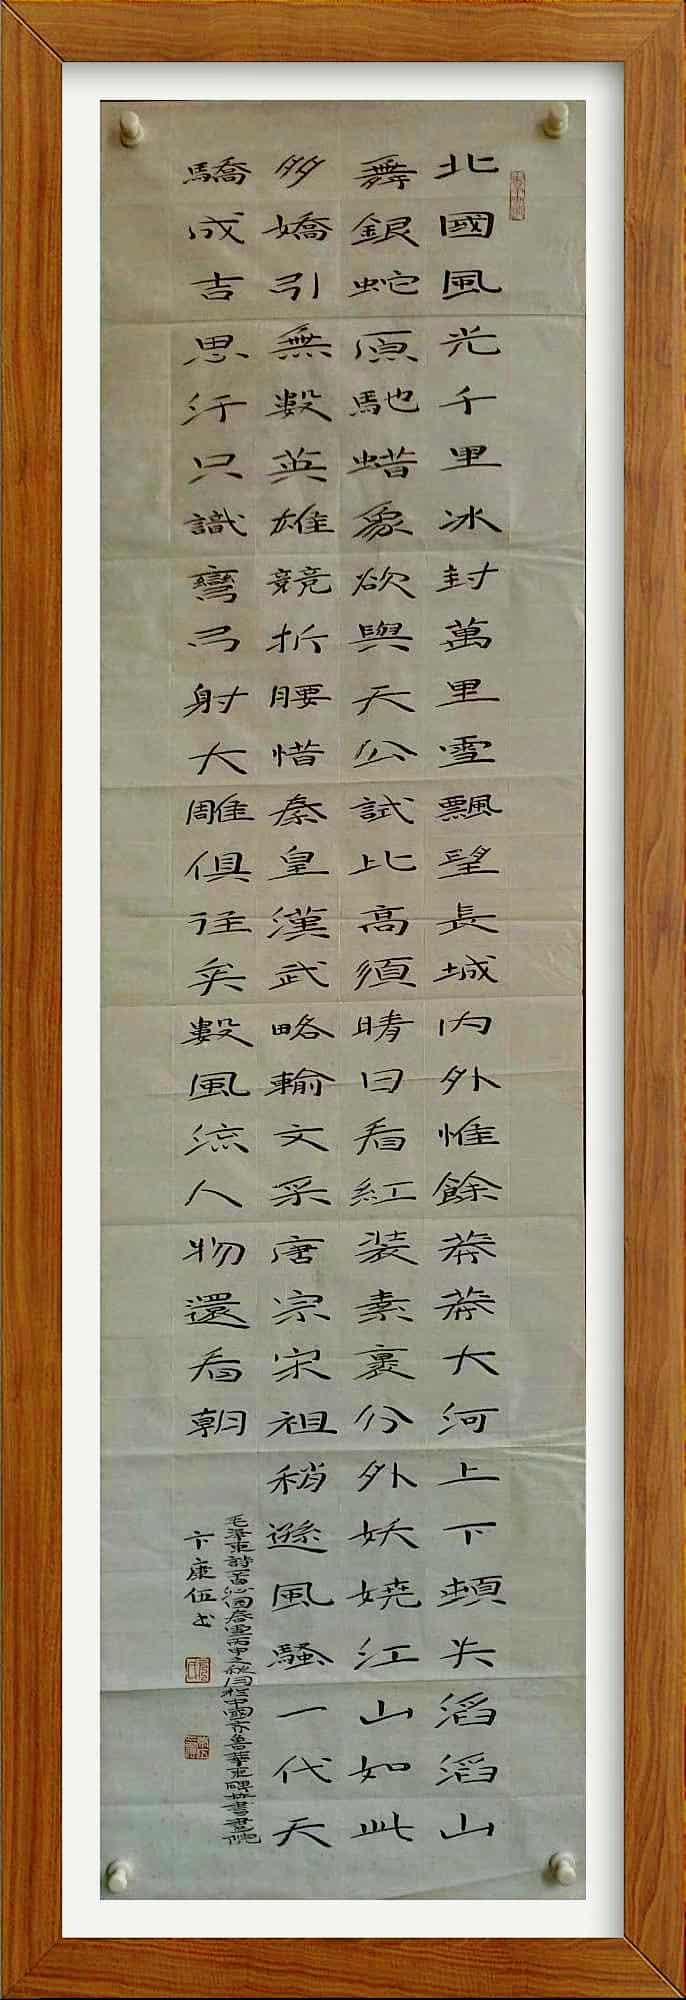 北國風光千里冰封萬里雪飄望長城内外惟餘莽莽大河上下頓失滔滔山
舞銀蛇原馳蜡象欲與天公試比高須晴日看紅装素裹分外妖嬈江山如此
多嬌引無數英雄競折腰惜秦皇漢武略輸文采唐宗宋祖稍遜風騷一代天
驕成吉思汗只識彎弓射大雕俱往矣數風流人物還看朝
毛澤東詩沁园春雪丙申之秋於中國齐魯華東碑林書畫院
卞康伍书